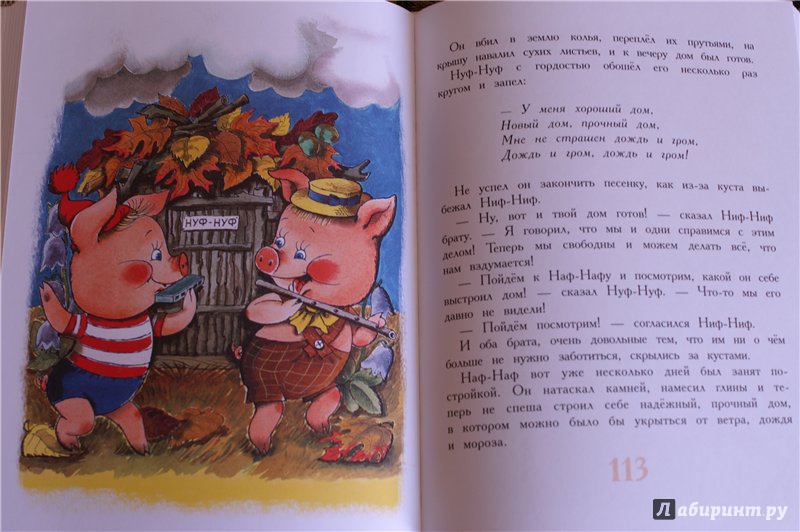 НУФ-НУФ
Он вбил в землю колья, переплёл их прутьями, на
крышу навалил сухих листьев, и к вечеру дом был готов.
Нуф-Нуф с гордостью обошёл его несколько раз
кругом и запел:
— У меня хороший дом,
Новый дом, прочный дом,
Мне не страшен дождь и гром,
Дождь и гром, дождь и гром!
Не успел он закончить песенку, как из-за куста вы-
бежал Ниф-Ниф.
— Ну, вот и твой дом готов! — сказал Ниф-Ниф
брату. — Я говорил, что мы и одни справимся с этим
делом! Теперь мы свободны и можем делать всё, что
нам вздумается!
— Пойдём к Наф-Нафу и посмотрим, какой он себе
выстроил дом! — сказал Нуф-Нуф. — Что-то мы его
давно не видели!
— Пойдём посмотрим! — согласился Ниф-Ниф.
И оба брата, очень довольные тем, что им ни о чём
больше не нужно заботиться, скрылись за кустами.
Наф-Наф вот уже несколько дней был занят по-
стройкой. Он натаскал камней, намесил глины и те-
перь не спеша строил себе надёжный, прочный дом,
в котором можно было бы укрыться от ветра, дождя
и мороза.
113
Лабиринт.ру